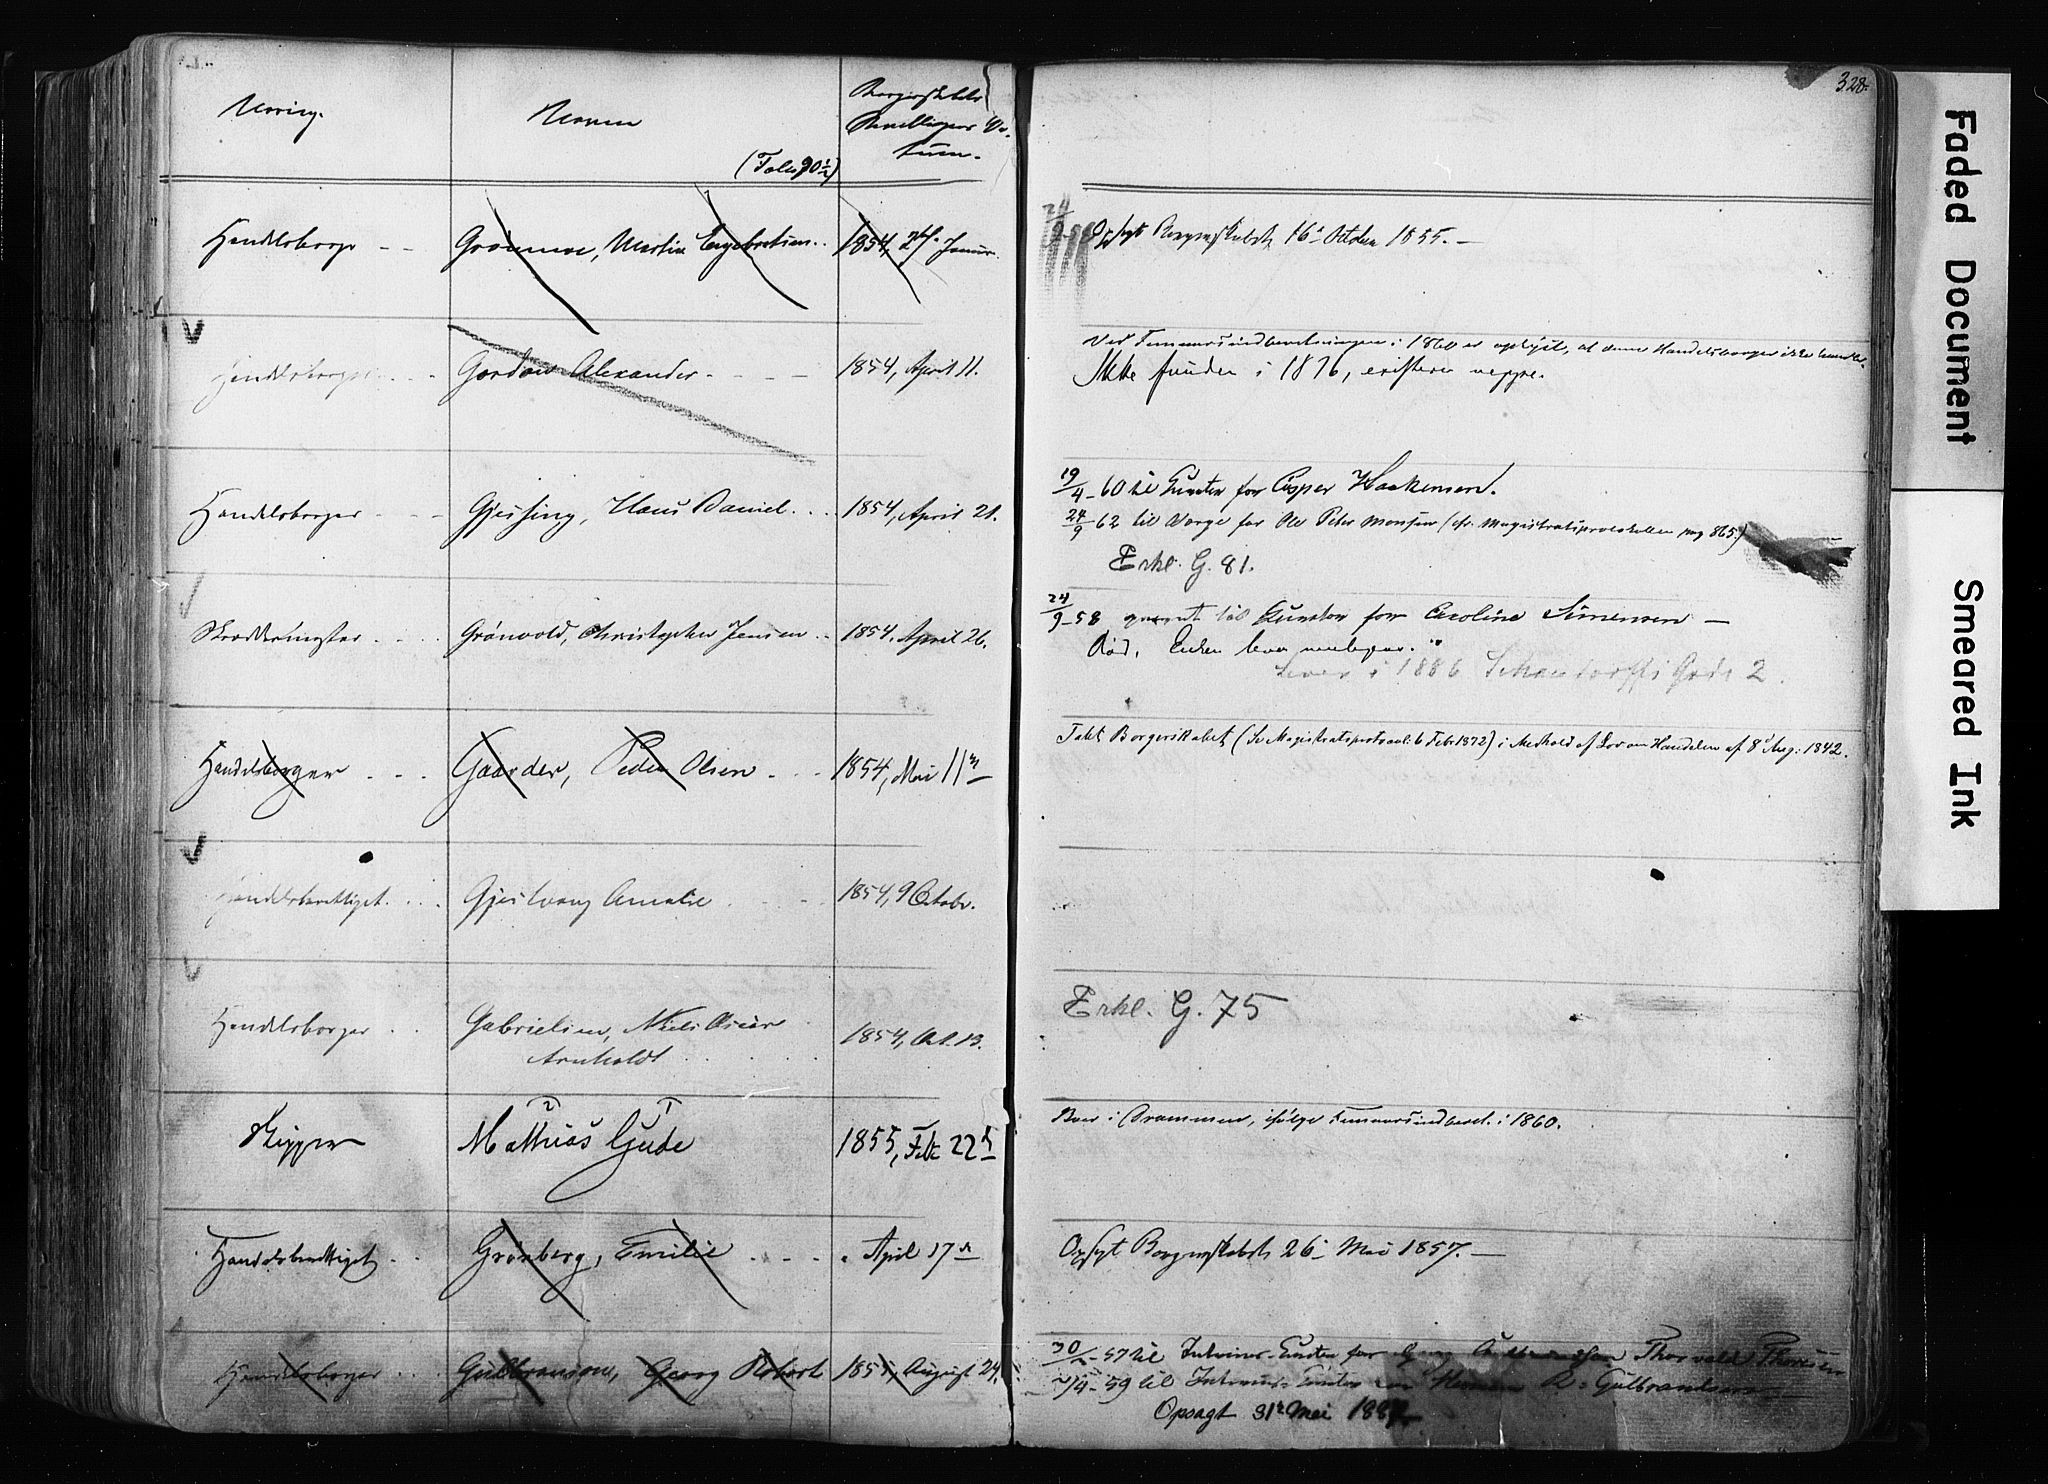 Næring.
Navn
(Folio 90½)
Borgerskabets
Bevillingers Da-
tum.
328.
Handelsborger - - Grønmoe, Martin Engebretsen.. 1854, 24. Januar.
Opsagt Borgerskabet 16. October 1855. -
Handelsborger . . . Gordon Alexander. - - - 1854, April 11.
Ved Femaarsindberetningen i 1860 er oplyst, at denne Handelsborger ikke
Ikke funden i 1876, existerer neppe.
Handelsborger - - - Gjessing, Hans Daniel . . . 1854, April 21.
19/4-60 til Gunsten for Casper Haakensen.
24/9 62 til Værge for Ole Peter Monsen (cfr. Magistratsprotokollen pag 865.)
Erkl. G. 81.
Skræddermester . - - Grönvold, Christopher Jensen . . 1854. April 26.
24/9-58 til Gunsten for Caroline Simensen -
Död, Enken
Lever i 1886 Schandorffs Gade 2.
Handelsborger . . . Gaarder, Peder Olsen . . . 1854, Mai 11te
Tabt Borgerskabet (Se Magistratsprotocol: 6 Febr 1872) i Medhold af Lov om Handelen af 8' Aug: 1842.
Handelsberettiget . . . Gjestvang Amalie . - - - 1854, 9 Octobr.
Handelsborger . . Gabrielsen, Niels Oscar
Arnholdt . . . . 1854, Oct. 13.
Erkl. G. 75
Skipper
2 1
Mathias Gude
1855, Feb 22d
Boer i Drammen, ifølge Femaarsindberet. i 1860.
Handelsberettiget . . Grønberg, Emilie . - - - " April 17de
Opsagt Borgerskabet 26 Mai 1857. -
Handelsborger . . . Gulbransson, Georg Robert 1855, August 24.
30/ -57 til Interims-Gunsten for Thorvald Thoresen
/4-59 til Interims-Gunsten for Herman R. Gulbrandsen
Opsagt 31te Mai
Faded Document
Smeared Ink